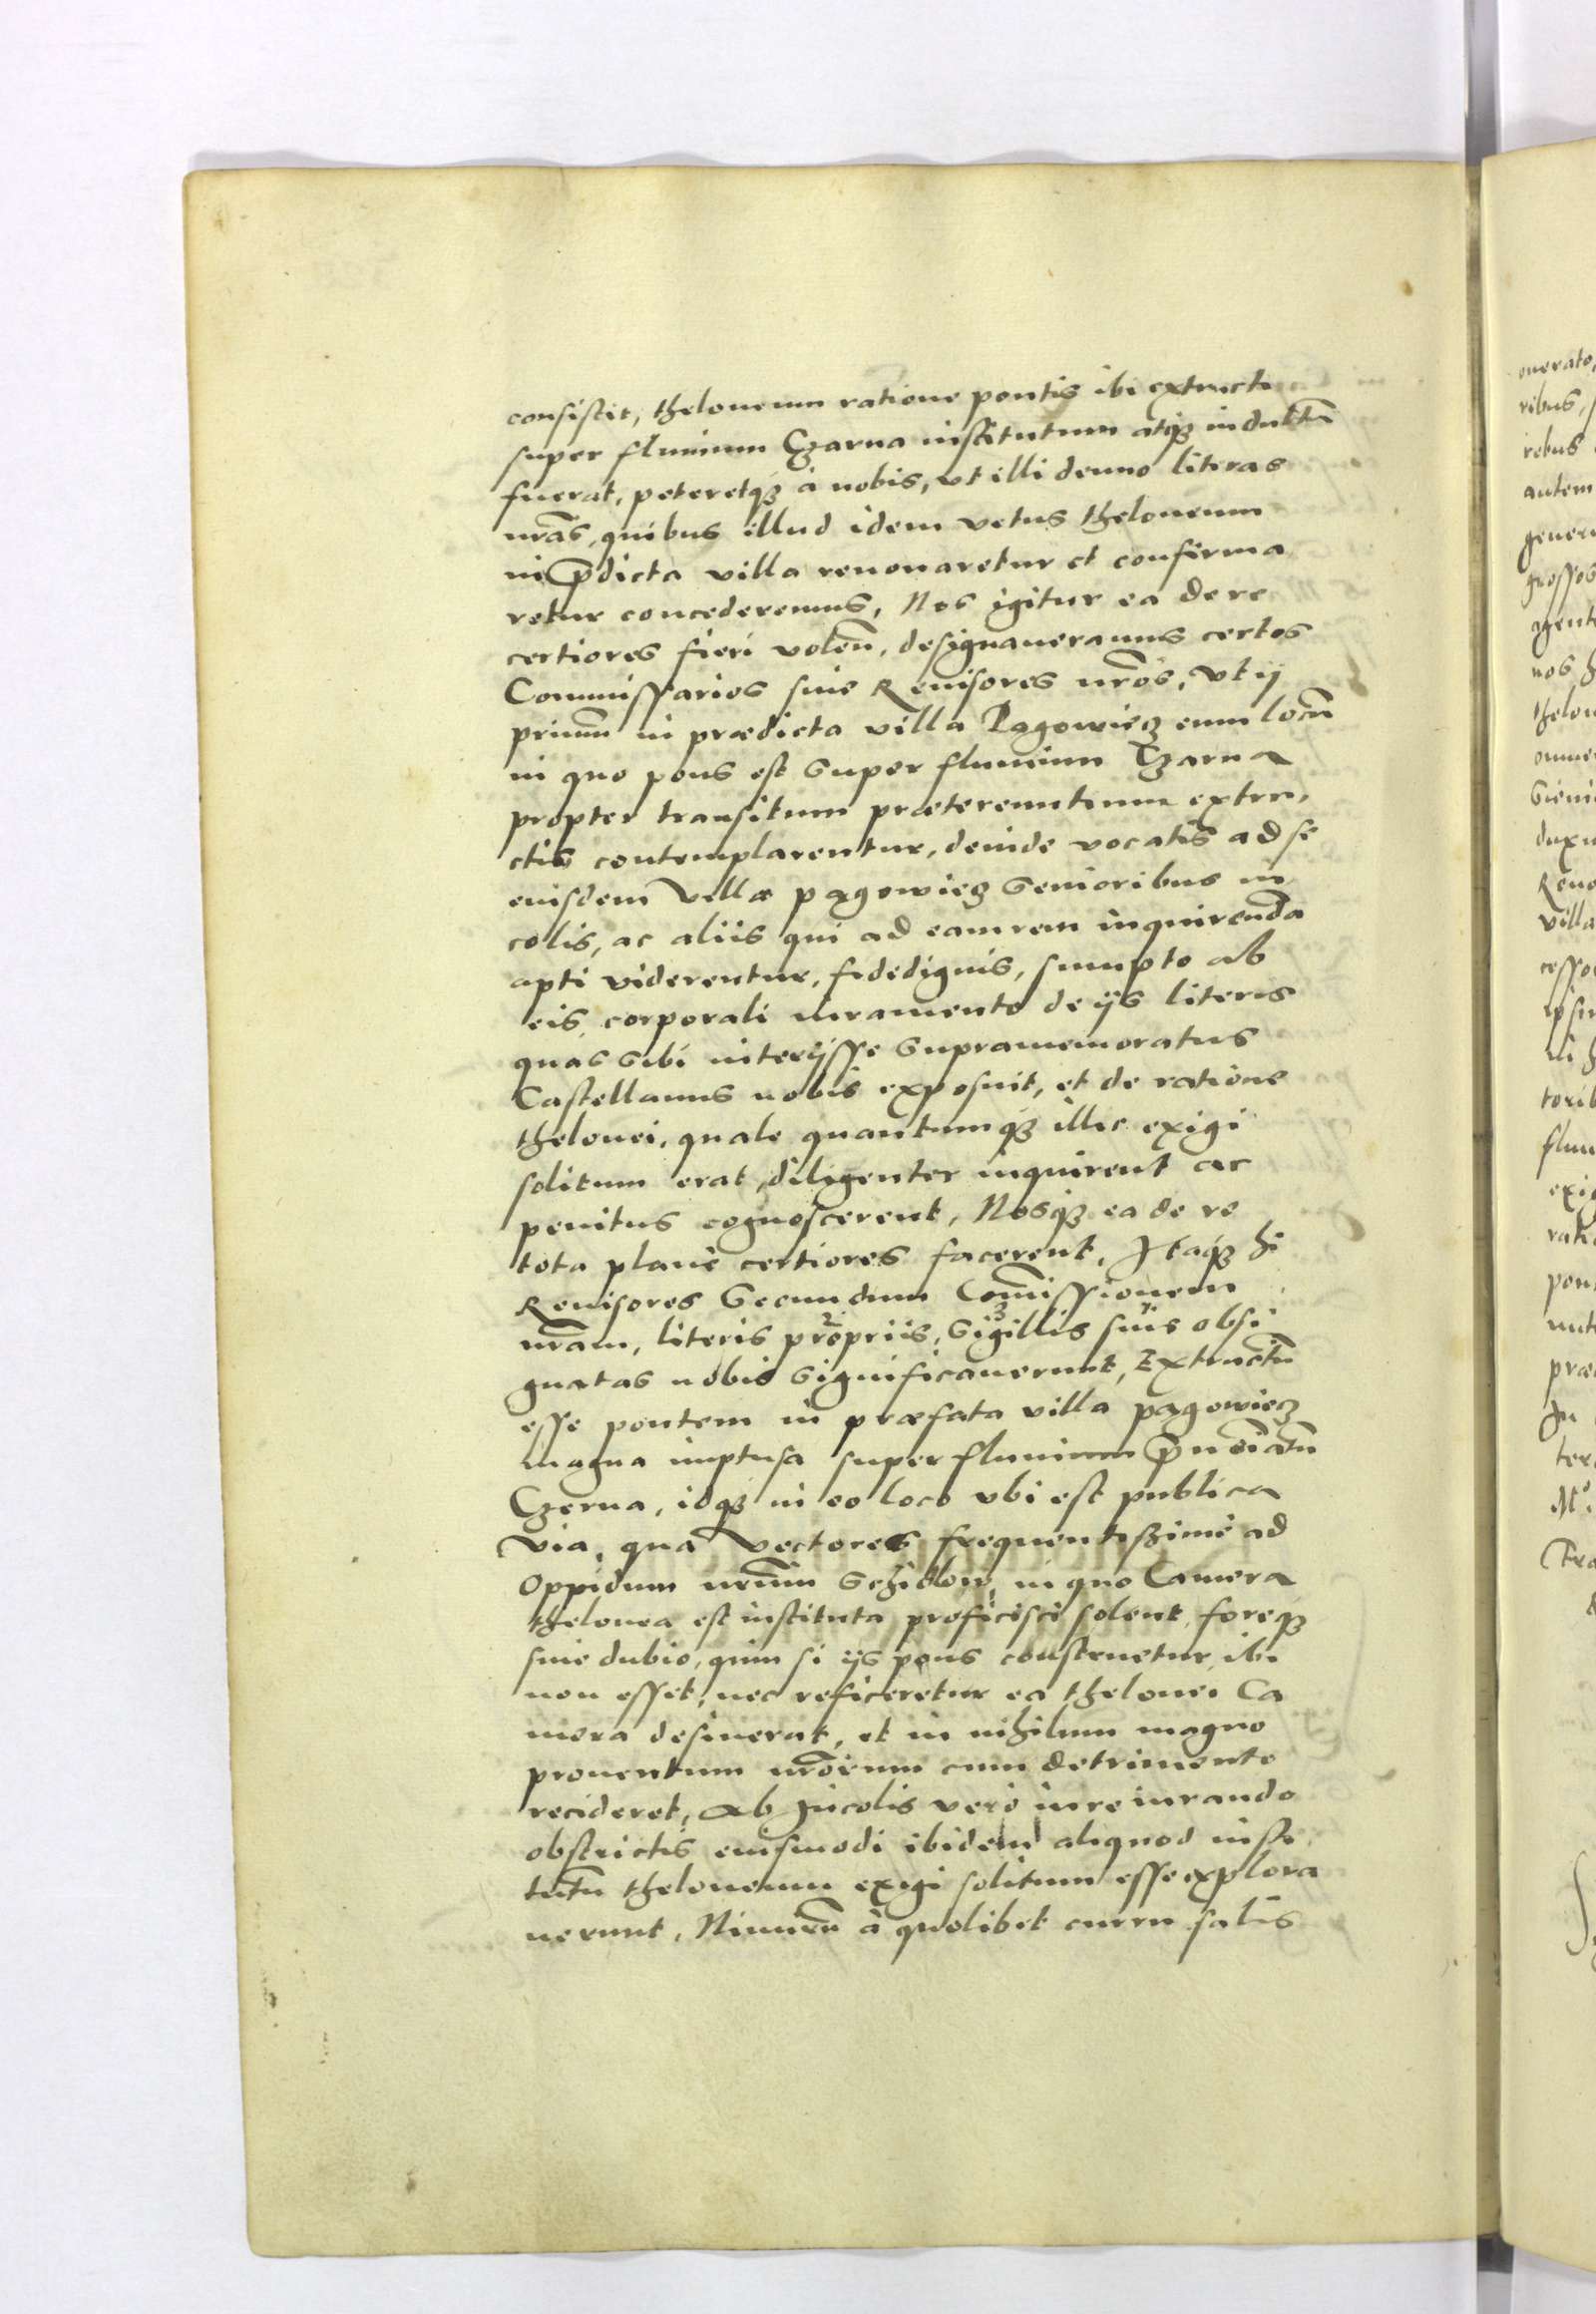 consistit, theloneum ratione pontis ibi extructi
super fluuium Czarna institutum atq₃ indultū
fuerat, peteretq₃ à nobis, vt illi denuo literas
nr̄as, quibus illud idem vetus theloneum
in p̄dicta villa renouaretur et confirma
retur concederemus, Nos igitur ea de re
certiores fieri volen̄, designaueramus certos
Commissarios siue Reuisores nr̄os, vt ij
primum in prædicta villa Pagowiecz eum locū
in quo pons est super fluuium Czarna
propter transitum prætereuntium extru,
ctis contemplarentur, deinde vocatis ad se
eiusdem Villæ pagowiecz senioribus in
colis, ac aliis qui ad eam rem inquirendā
apti viderentur, fidedignis, sumpto ab
eis, corporali iuramento de ijs literis
quas sibi interijsse supramemoratus
Castellanus nobis exposuit, et de ratione
thelonei, quale quantumq₃ illic exigi
solitum erat, diligenter inquirent ac
penitus cognoscerent, Nosq₃ ea de re
tota planè certiores facerent, Itaq₃ hi
Reuisores Secundum Com̄issionem
nr̄am, literis propriis, sigillis suis obsi
gnatas nobis significauerunt, Extructū
esse pontem in præfata villa pagowiecz
magna impensa super fluuium p̄no͞iatū
Czerna, idq₃ in eo loco vbi est publica
Via, qua Vectores frequentiszime ad
Oppidum nr̄um Schidlow, in quo Camera
thelonea est instituta proficisci solent, foreq₃
sine dubio, quin si ijs pons construetur, ibi
non esset, nec reficeretur ea thelonei Ca
mera desinerat, et in nihilum magno
prouentuum nr̄orum cum detrimento
recideret, Ab Incolis verò iure iurando
obstrictis eiusmodi ibidem aliquod insti
tutū theloneum exigi solitum esse explora
uerunt, Nimirū à quolibet curru salis